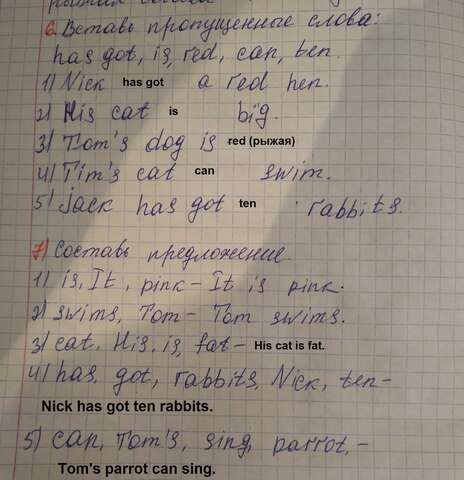 6. Вставь пропущенные слова:
has got, is, red, can, ten.
1) Nick has got a red hen.
2) His cat is big.
3) Tom's dog is red (рыжая)
4) Tim's cat can swim.
5) Jack has got ten rabbits.
7) Составь предложение.
1) is, It, pink - It is pink.
2) swims, Tom - Tom swims.
3) cat, His, is, fat - His cat is fat.
4) has, got, rabbits, Nick, ten -
Nick has got ten rabbits.
5) can, Tom's, sing, parrot, -
Tom's parrot can sing.